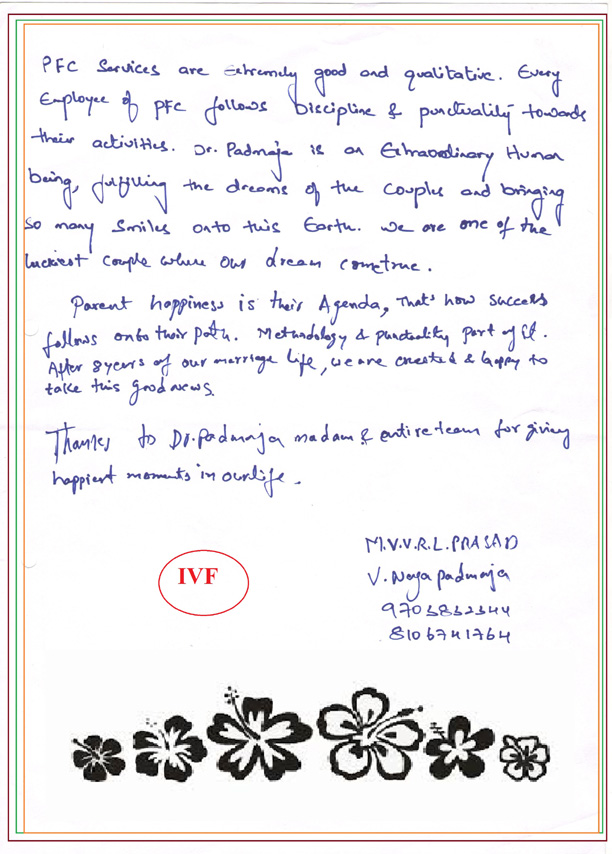 PFC Services are Extremely good and qualitative. Every
Employee of PFC follows Discipline & punctuality towards
their activities. Dr. Padmaja is an Extraordinary Human
being, fulfilling the dreams of the couples and bringing
so many smiles onto this Earth. we are one of the
luckiest couple where our dream cometrue.
Parent happiness is their Agenda, That's how success
follows onto their path. Methodology & punctuality part of it.
After 8 years of our marriage life, we are & happy to
take this good news.
Thanks to Dr. Padmaja madam & entire team for giving
happiest moments in our life.
M.V.V.R.L. PRASAD
V. Naga padmaja
9703832344
8106741764
IVF